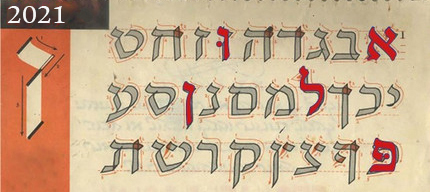 2021
אבגדהוזחט
יכךלמםנןסע
פףצץקרשת
ן